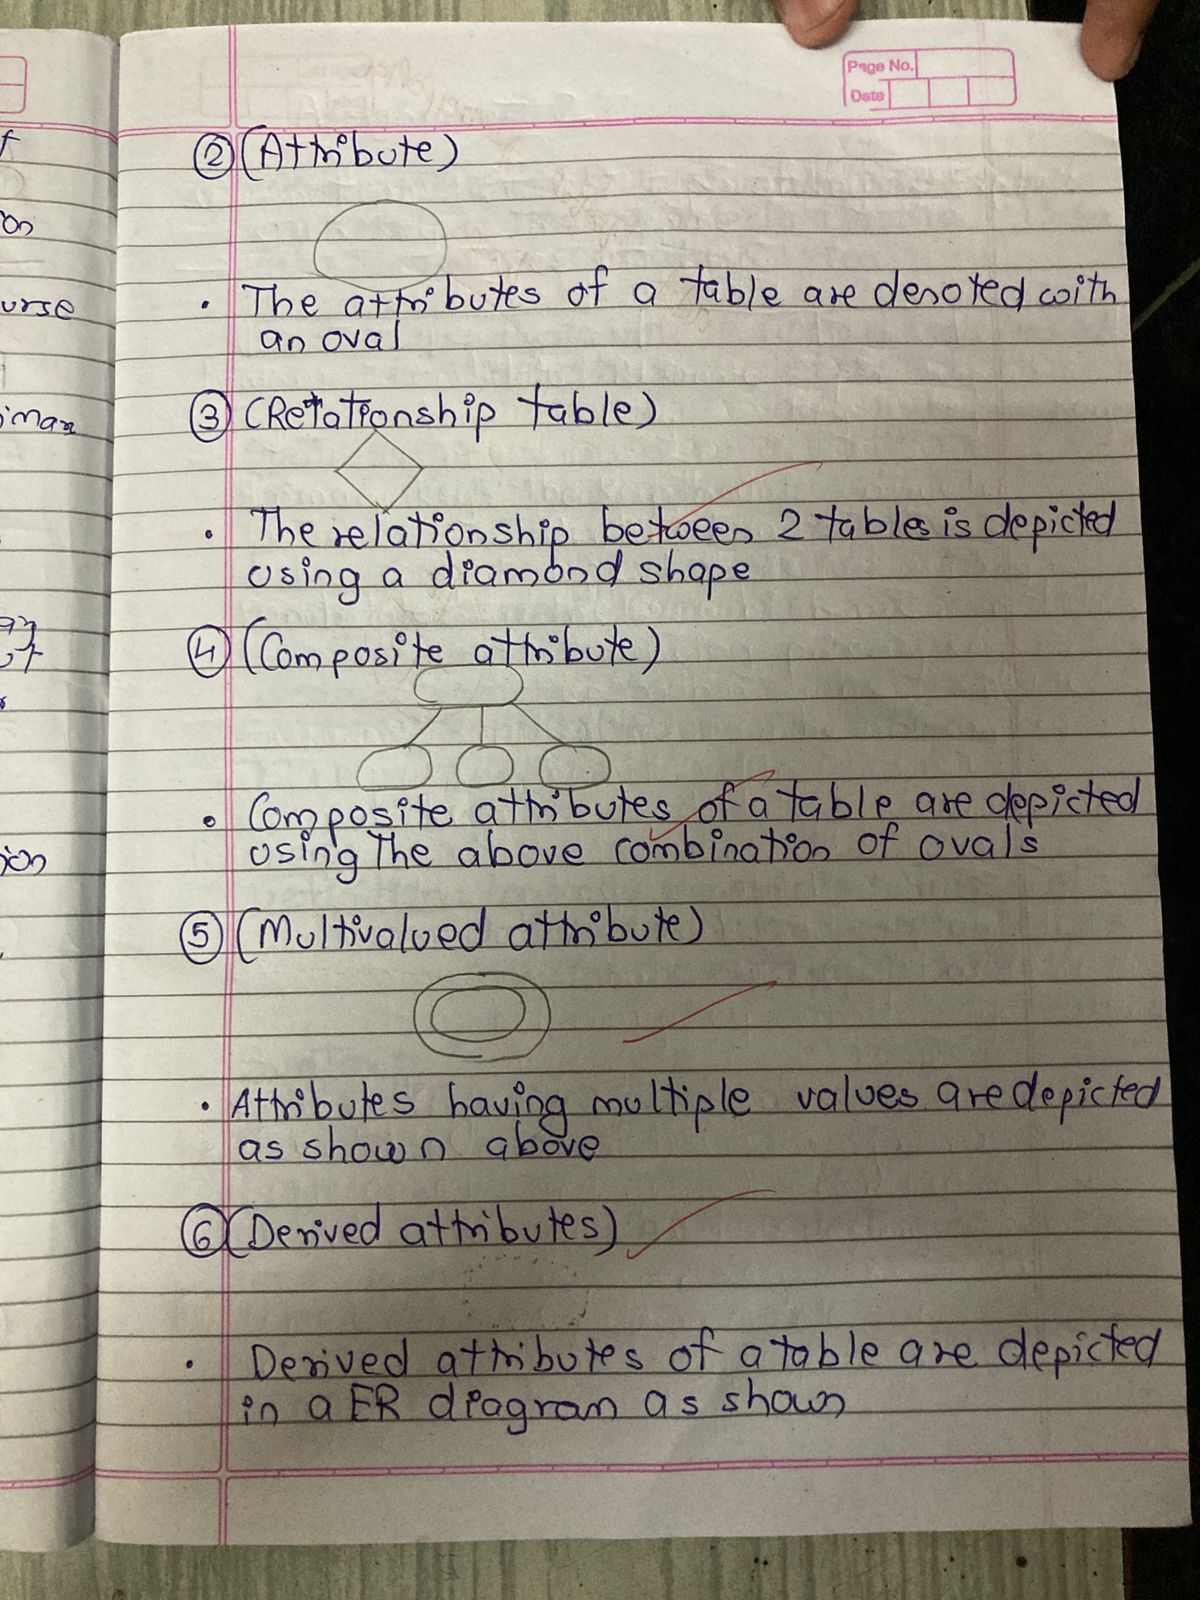 Page No.
Date
② (Attribute)
• The attributes of a table are denoted with
an oval
③ (Relationship table)
• The relationship between 2 tables is depicted
using a diamond shape
④ (Composite attribute)
• Composite attributes of a table are depicted
using the above combination of ovals
⑤ (Multivalued attribute)
• Attributes having multiple values are depicted
as shown above
⑥ (Derived attributes)
• Derived attributes of a table are depicted
in a ER diagram as shown
on
urse